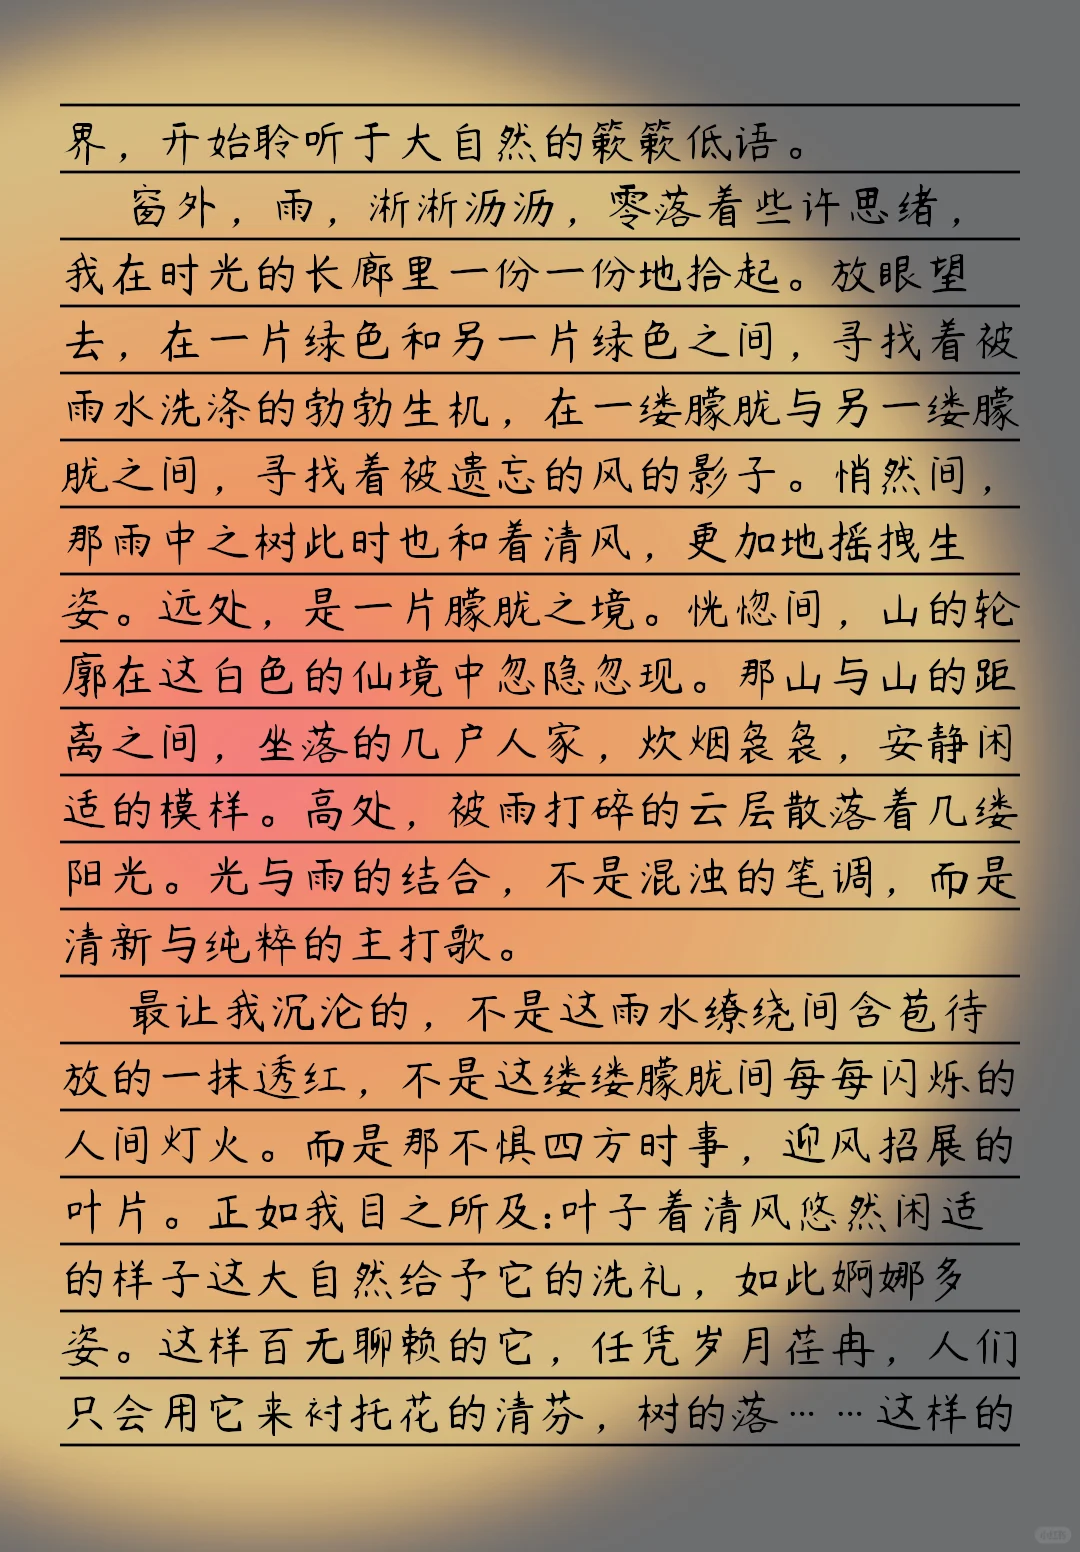 界，开始聆听于大自然的簌簌低语。
窗外，雨，淅淅沥沥，零落着些许思绪，
我在时光的长廊里一份一份地拾起。放眼望
去，在一片绿色和另一片绿色之间，寻找着被
雨水洗涤的勃勃生机，在一缕朦胧与另一缕朦
胧之间，寻找着被遗忘的风的影子。悄然间，
那雨中之树此时也和着清风，更加地摇拽生
姿。远处，是一片朦胧之境。恍惚间，山的轮
廓在这白色的仙境中忽隐忽现。那山与山的距
离之间，坐落的几户人家，炊烟袅袅，安静闲
适的模样。高处，被雨打碎的云层散落着几缕
阳光。光与雨的结合，不是混浊的笔调，而是
清新与纯粹的主打歌。
最让我沉沦的，不是这雨水缭绕间含苞待
放的一抹透红，不是这缕缕朦胧间每每闪烁的
人间灯火。而是那不惧四方时事，迎风招展的
叶片。正如我目之所及:叶子着清风悠然闲适
的样子这大自然给予它的洗礼，如此婀娜多
姿。这样百无聊赖的它，任凭岁月荏冉，人们
只会用它来衬托花的清芬，树的落……这样的